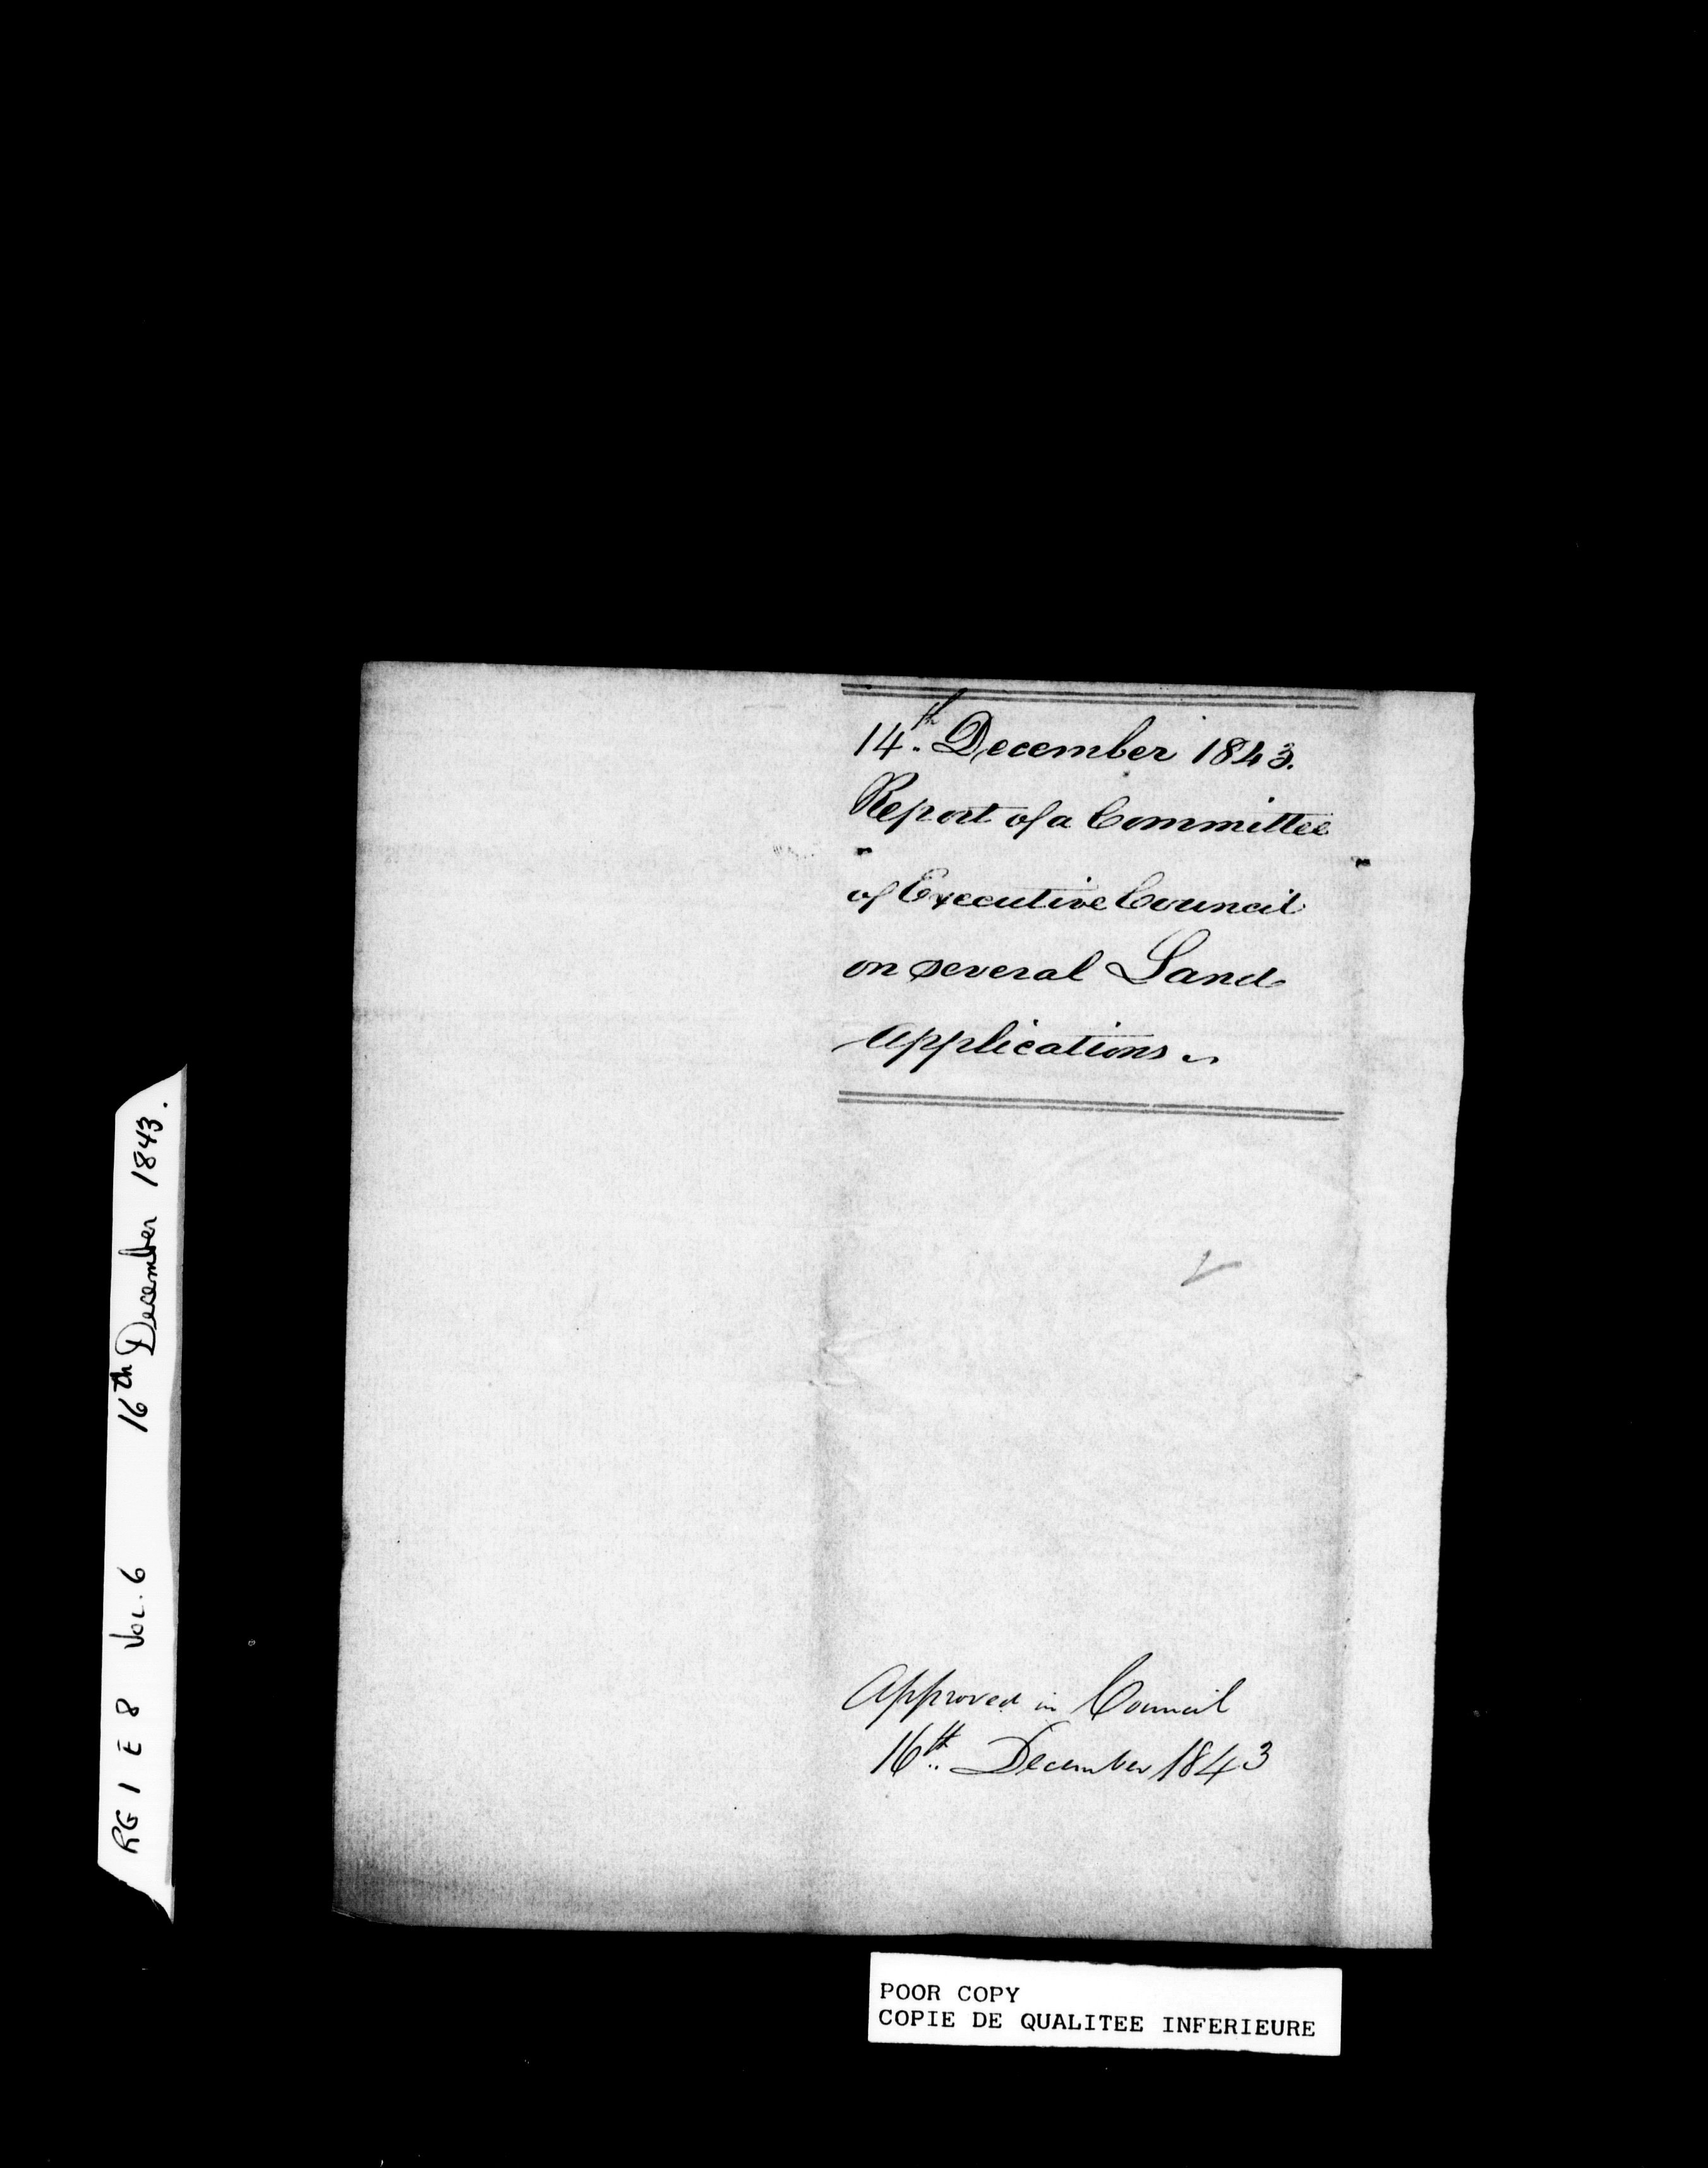 14th. December 1843.
Report of a Committee
of Executive Council
on several Land
Applications
Approved in Council
16th. December 1843
RG 1 E 8 Vol. 6 16th December 1843.
POOR COPY
COPIE DE QUALITEE INFERIEURE